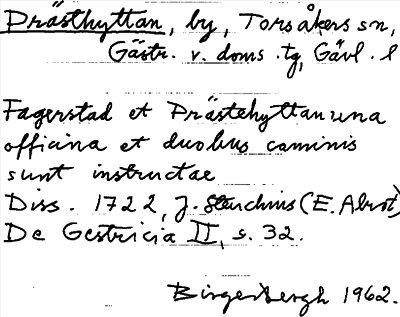 Prästhyttan, by, Torsåkers sn,
Gästr. v. doms. tg, Gävl. l
Fagerstad et Prästehyttan una
officina et duobus caminis
sunt instructae
Diss. 1722, J. (E. Abrot)
De Gestricia II, s. 32.
Birger Bergh 1962.